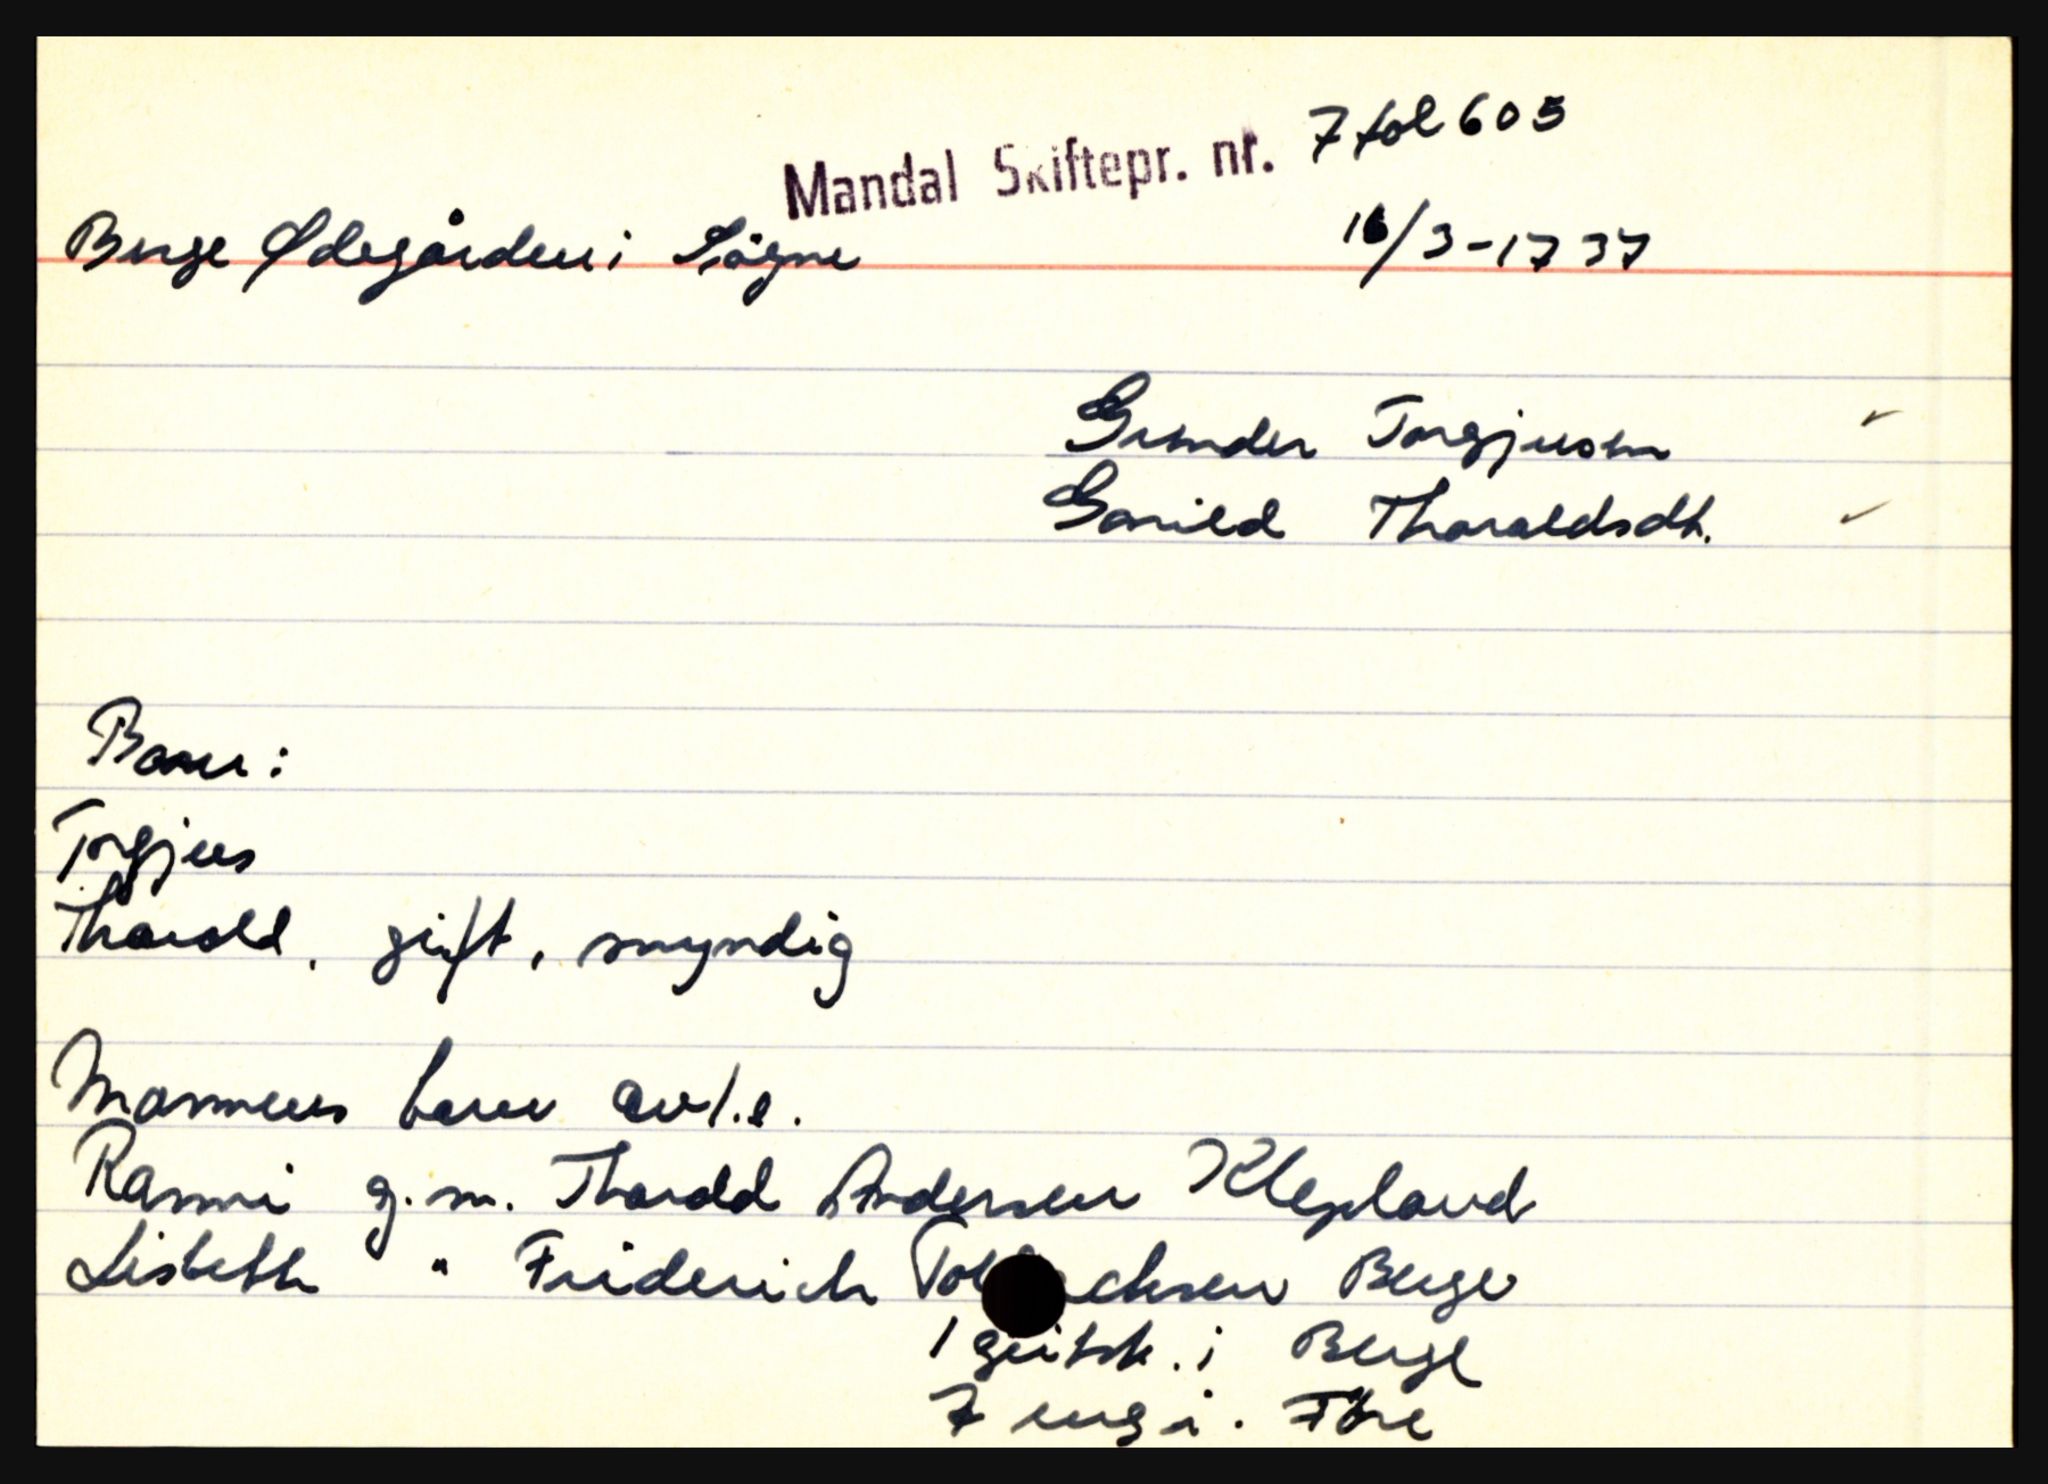 Mandal Skiftepr. nr. 7 fol 605
Berge Ødegården i Søgne 16/3-1737
Gunder Torgjusen
Gunild Tharaldsdt.
Barn:
Torgjus
Tharald, gift, myndig
Mannens barn av 1.e.
Ranni g.m. Tharald Andersen Klepland
Lisbeth " Friderich Berge
1 geitsk. i Berge
7 eng i.